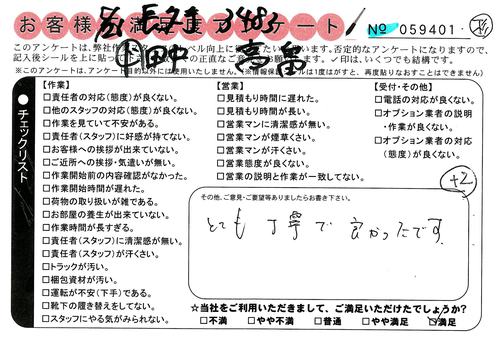 お客様満足度アンケート
No 059401
田中
このアンケートは、弊社
記入後シールを上に貼って
※このアンケートは、アンケート目的以外には使用いたしません。(※情報保護シールは1度はがすと、再度貼りなおすことはできません)
チェックリスト
【作業】
□責任者の対応(態度)が良くない。
□他のスタッフの対応(態度)が良くない。
□作業を見ていて不安がある。
□責任者(スタッフ)に好感が持てない。
□お客様への挨拶が出来ていない。
□ご近所への挨拶・気遣いが無い。
□作業開始前の内容確認がなかった。
□作業開始時間が遅れた。
□荷物の取り扱いが雑である。
□お部屋の養生が出来ていない。
□作業時間が長すぎる。
□責任者(スタッフ)に清潔感が無い。
□責任者(スタッフ)が汗くさい。
□トラックが汚い。
□梱包資材が汚い。
□運転が不安(下手)である。
□靴下の履き替えをしてない。
□スタッフにやる気がみられない。
【営業】
□見積もり時間に遅れた。
□見積もり時間が長い。
□営業マンに清潔感が無い。
□営業マンが煙草くさい。
□営業マンが汗くさい。
□営業態度が良くない。
□営業の説明と作業が一致してない。
【受付・その他】
□電話の対応が良くない。
□オプション業者の説明
・作業が良くない。
□オプション業者の対応
(態度)が良くない。
+2
その他、ご意見・ご要望等ありましたらお書き下さい。
とても 丁寧で 良かったです。
☆当社をご利用いただきまして、ご満足いただけたでしょうか?
□不満 □やや不満 □普通 □やや満足 □満足